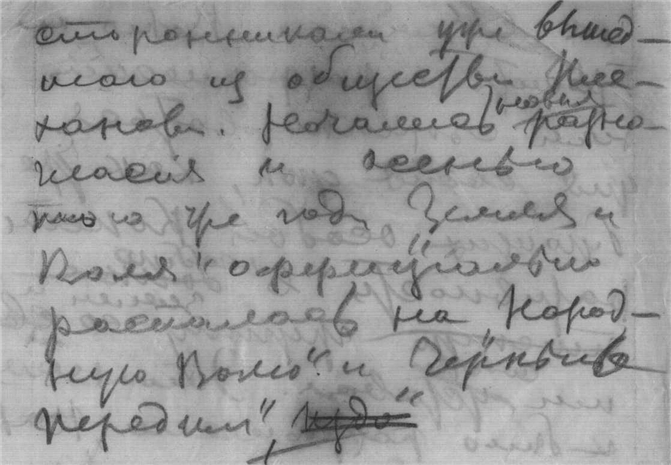 сторонниками уже вышед-
шаго из общества Пле-
ханова. Начались новыя разно-
гласия и осенью
того же года „Земля и
Воля" оффициально
распалась на „Народ-
ную Волю" и „Черный
передел"